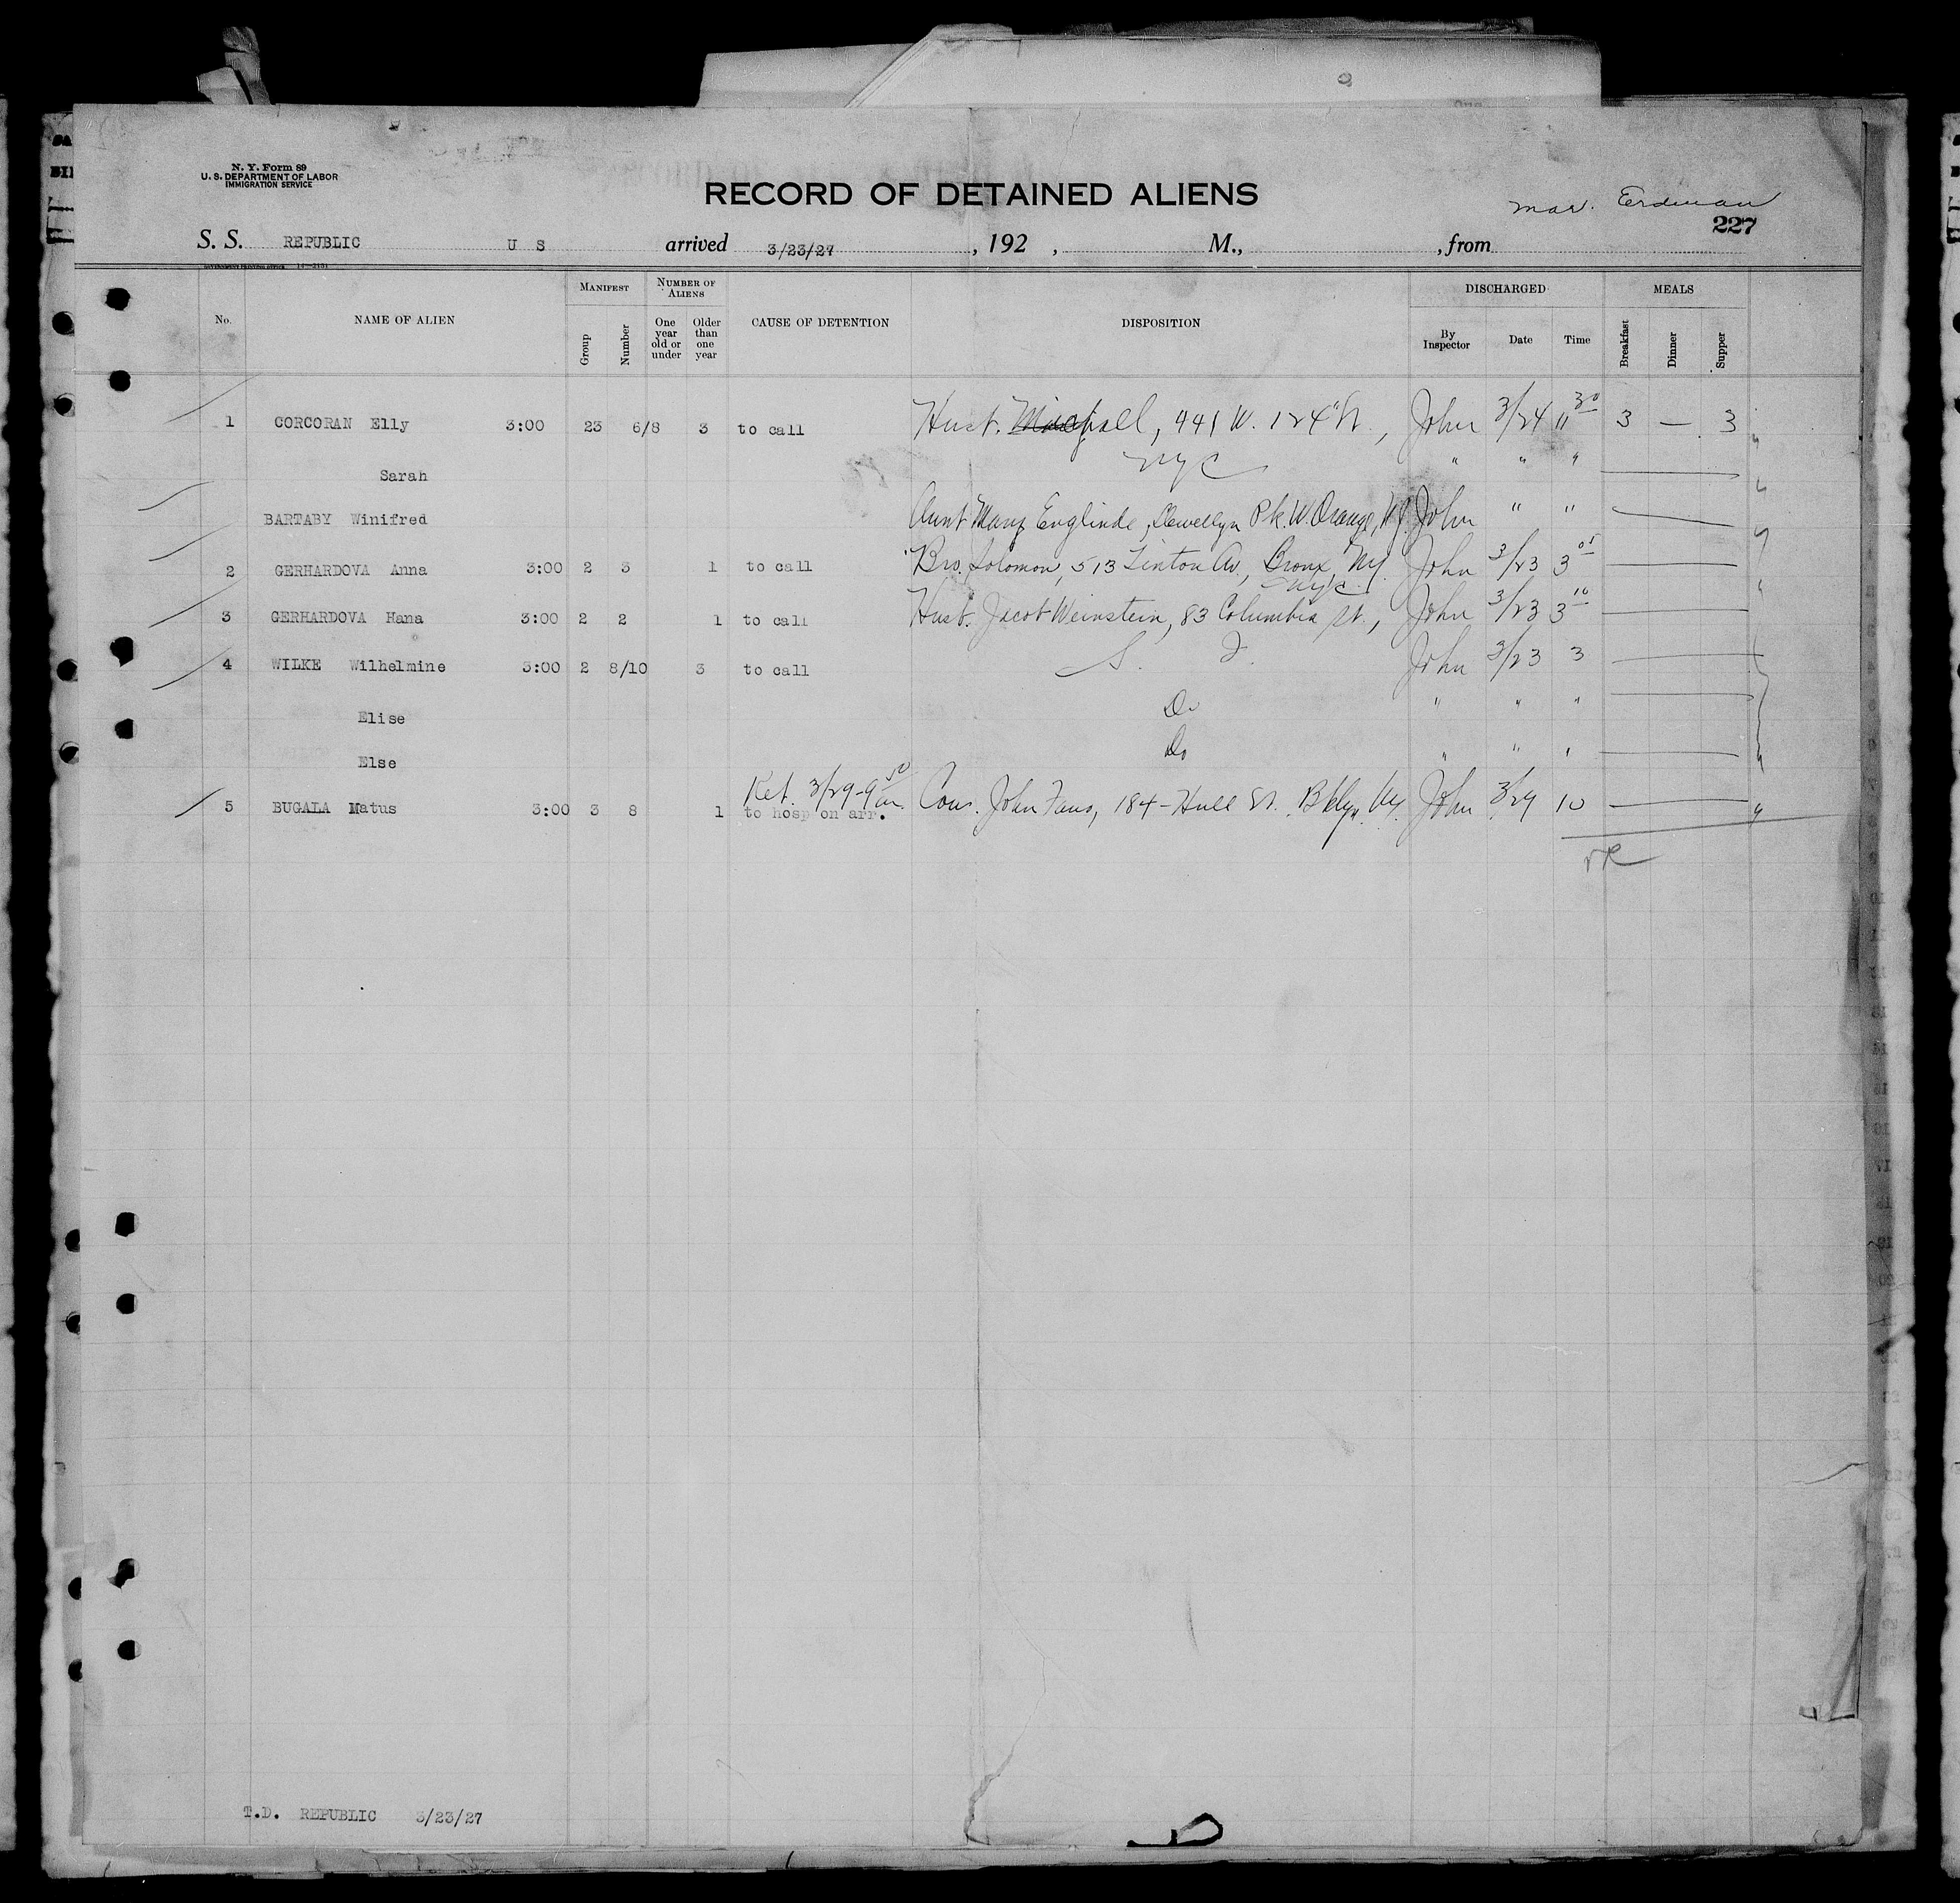 N. Y. Form 89
U. S. DEPARTMENT OF LABOR
IMMIGRATION SERVICE
RECORD OF DETAINED ALIENS
Mar. Erdman
227
S. S. REPUBLIC U S arrived 3/23/27, 192 , M., , from
No. NAME OF ALIEN MANIFEST NUMBER OF ALIENS CAUSE OF DETENTION DISPOSITION DISCHARGED MEALS
Group Number One year old or under Older than one year By Inspector Date Time Breakfast Dinner Supper
1 CORCORAN Elly 3:00 23 6/8 3 to call Hust. 441 W. 124" St., John 3/24 11 30 3 — 3
NYC " " "
Sarah
BARTABY Winifred Aunt Mary Englinde, Llewellyn Pk. W. Orange, NJ. John " "
2 GERHARDOVA Anna 3:00 2 3 1 to call Bro. Solomon, 513 Tinton Av, Bronx, NY John 3/23 3 05
NYC
3 GERHARDOVA Hana 3:00 2 2 1 to call Hust. Jacob Weinstein, 83 Columbia St., John 3/23 3 10
4 WILKE Wilhelmine 3:00 2 8/10 3 to call S. I. John 3/23 3
Elise Do " " "
Else Do " " "
Ret. 3/29-9 50 am.
5 BUGALA Matus 3:00 3 8 1 to hosp on arr. Cous. John Fano, 184-Hull St. Bklyn NY. John 3/29 10
T.D. REPUBLIC 3/23/27